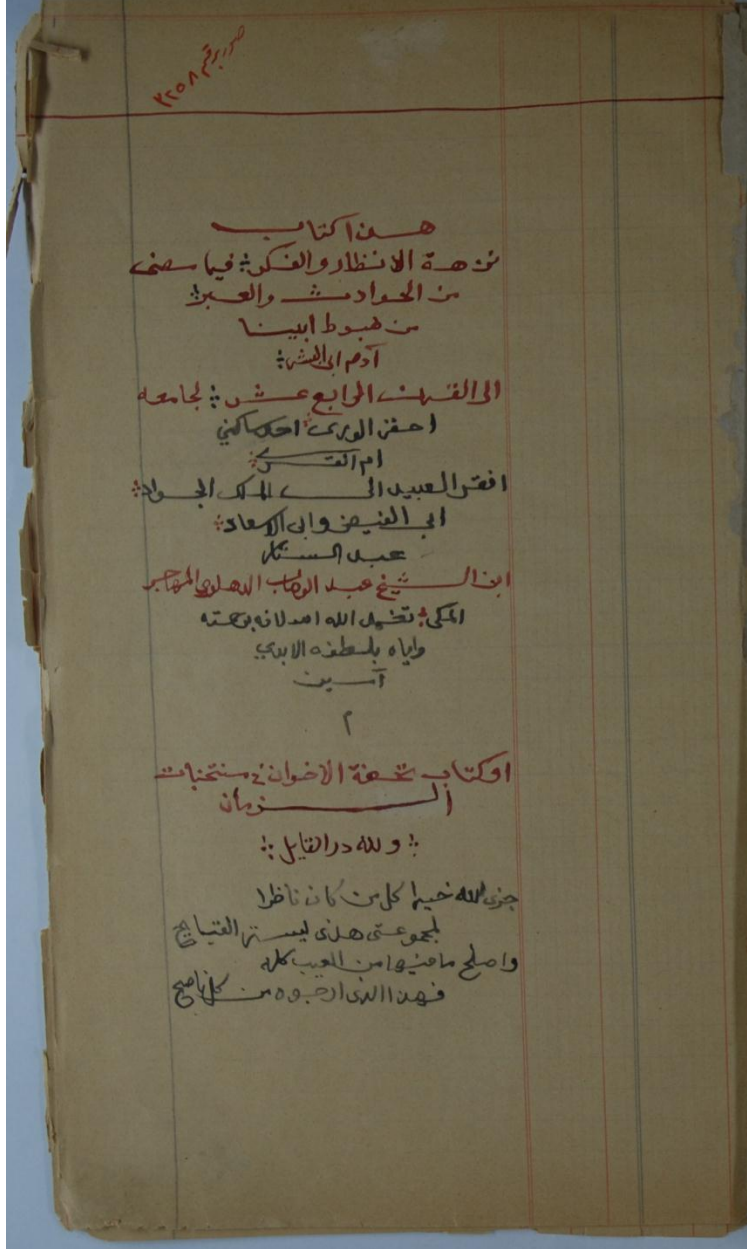 صور برقم ٢٢٥٨
هذا كتاب
نزهة الانظار والفكر فيما مضى
من الحوادث والعبر
من هبوط ابينا
آدم ابي البشر
الى القرن الرابع عشر لجامعه
احقر الورى احد ساكني
ام القرى
افقر العبيد الى الملك الجواد
ابي الفيض وابي الاسعاد
عبد الستار
ابن الشيخ عبد الوهاب الدهلوي المهاجر
المكي تغمد الله اسلافه برحمته
واياه بلطفه الابدي
آمين
٢
او كتاب تحفة الاخوان في منتخبات
الزمان
ولله در القايل
جزى الله خيرا كل من كان ناظرا
لمجموعتي هذي ليستر القبايح
واصلح ما فيها من العيب كله
فهذا الذي ارجوه من كل ناصح